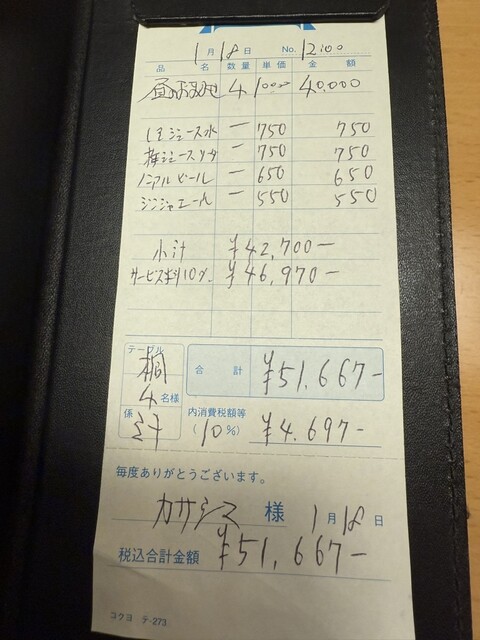 1月18日 No. 12:00
品名 数量 単価 金額
昼のお 4 10000 40,000
ジュース水 一 750 750
ジュースソーダ 一 750 750
ノンアルビール 一 650 650
ジンジャエール 一 550 550
小計 ¥42,700-
サービス料10% ¥46,970-
テーブル 桐
4名様
合計 ¥51,667-
係
内消費税額等
(10%) ¥4,697-
毎度ありがとうございます。
カサシス 様 1月18日
税込合計金額 ¥51,667-
コクヨ テ-273